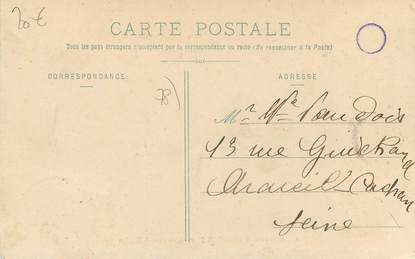 20 €
CARTE POSTALE
Tous les pays étrangers n'acceptent pas la correspondance au recto (Se renseigner à la Poste)
CORRESPONDANCE
ADRESSE
78)
Mr
13 rue
Arcueil - Cachan
Seine